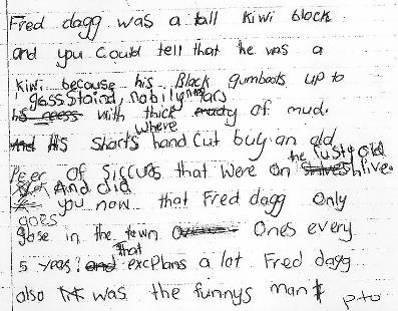 Fred dagg was a tall kiwi block
and you could tell that he was a
kiwi because his Black gumboots up to
grass staind, nobily nees
his with thick layers of mud.
His sharts where hand cut buy an old
Peer of siccurs that were on the rusty old shlive.
And did
you now that Fred dagg only
goes in the town Ones every
5 years? that excplans a lot Fred dagg
also was the funnys man
pto